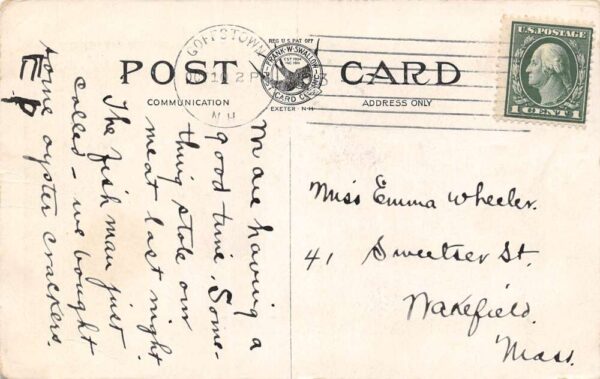 REG U.S PAT OFF
POST CARD
FRANK·W·SWALLOW
POST CARD CO. INC.
EXETER - N·H
COMMUNICATION
ADDRESS ONLY
GOFFSTOWN
2 P
N.H.
U.S. POSTAGE
1 CENT 1
are having a
good time. Some-
thing stole our
meat last night
The fish man just
called – we bought
some oyster crackers.
Miss Emma Wheeler.
41 Sweetser St.
Wakefield.
Mass.